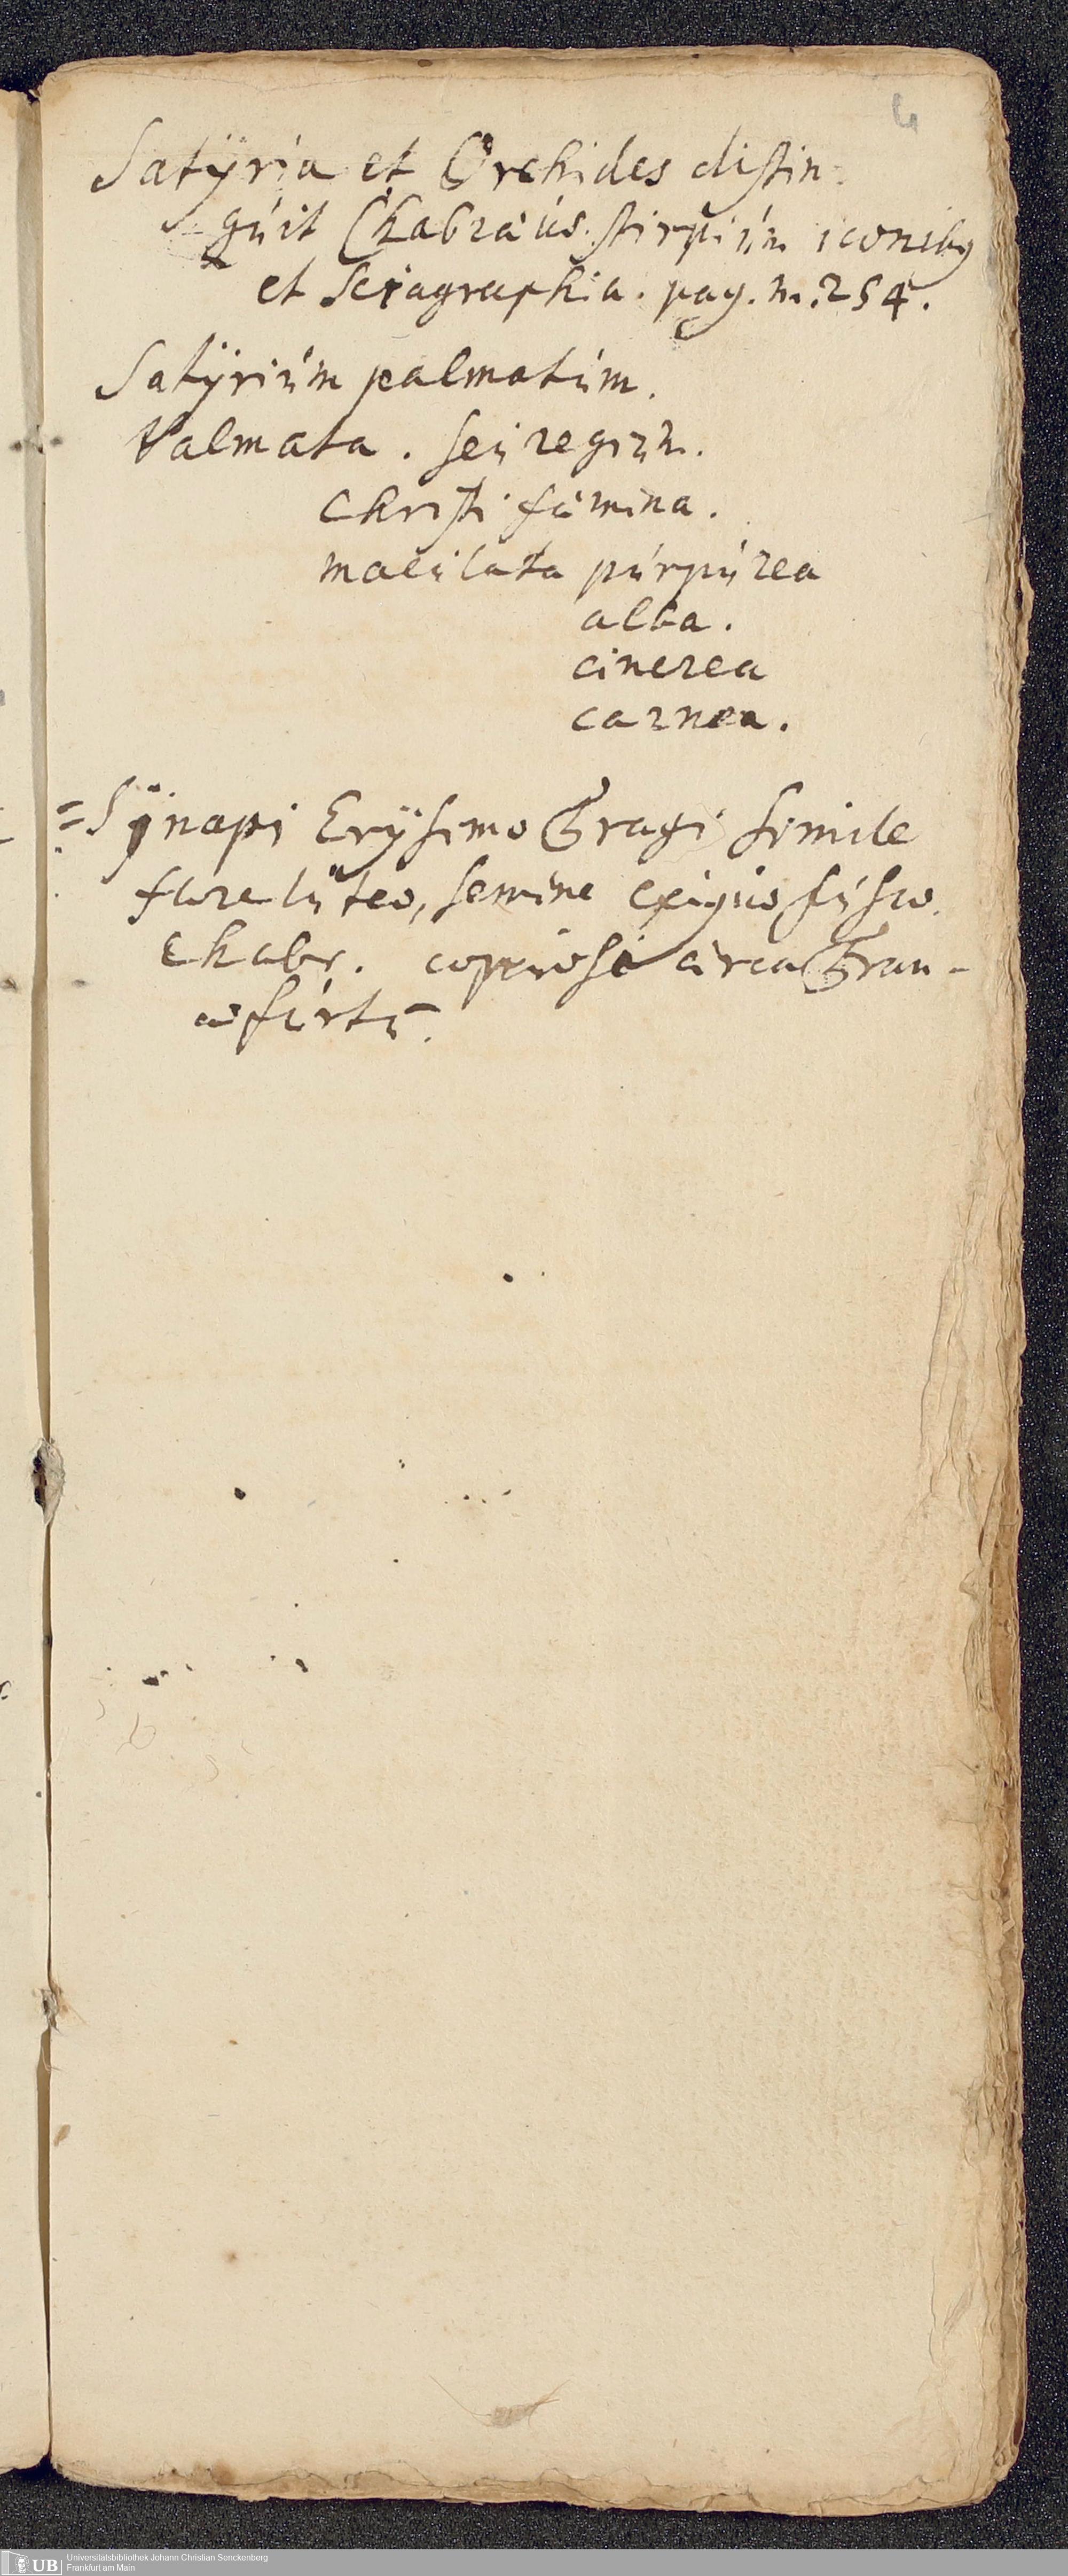 4
Satÿria et Orchides distin-
guit Chabraeus. stirpium iconibq
et Sciagraphia. pag. m. 254.
Satÿrium palmatum.
Palmata. seu regium.
Christi fæmina.
maculata purpurea
alba.
cinerea
carnea.
= Sÿnapi Erÿsimo Tragi simile
flore luteo, semine exiguo fusco.
Chabr. copiosè circa Fran-
cofurtū.
UB Universitätsbibliothek Johann Christian Senckenberg
Frankfurt am Main